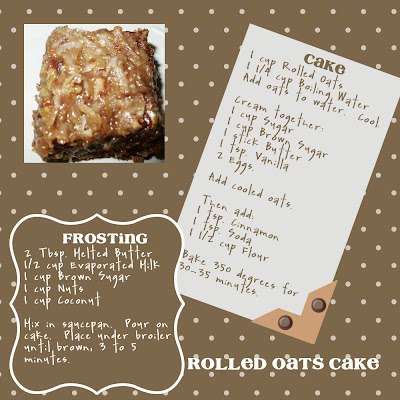 Cake
1 cup Rolled Oats
1 1/4 cup Boiling Water
Add oats to water. Cool.
Cream together:
1 cup Sugar
1 cup Brown Sugar
1 stick Butter
1 tsp. Vanilla
2 Eggs.
Add cooled oats.
Then add:
1 tsp. Cinnamon
1 tsp. Soda
1 1/2 cup Flour
Bake 350 degrees for
30-35 minutes.
Frosting
2 Tbsp. Melted Butter
1/2 cup Evaporated Milk
1 cup Brown Sugar
1 cup Nuts
1 cup Coconut
Mix in saucepan. Pour on
cake. Place under broiler
until brown, 3 to 5
minutes.
Rolled Oats Cake